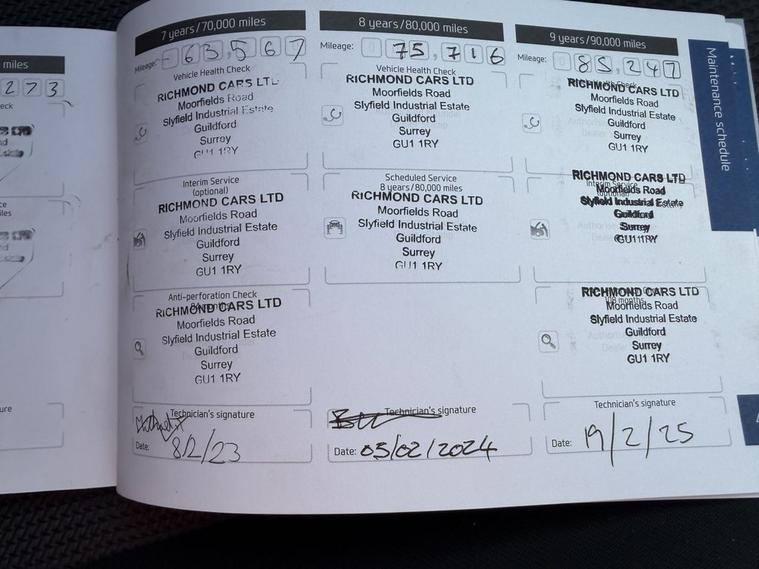 miles
273
7 years/70,000 miles
Mileage: 63,567
Vehicle Health Check
RICHMOND CARS LTD
Moorfields Road
Slyfield Industrial Estate
Guildford
Surrey
GU1 1RY
Interim Service
(optional)
RICHMOND CARS LTD
Moorfields Road
Slyfield Industrial Estate
Guildford
Surrey
GU1 1RY
Anti-perforation Check
RICHMOND CARS LTD
Moorfields Road
Slyfield Industrial Estate
Guildford
Surrey
GU1 1RY
Technician's signature
Date: 8/2/23
8 years/80,000 miles
Mileage: 75,716
Vehicle Health Check
RICHMOND CARS LTD
Moorfields Road
Slyfield Industrial Estate
Guildford
Surrey
GU1 1RY
Scheduled Service
8 years/80,000 miles
RICHMOND CARS LTD
Moorfields Road
Slyfield Industrial Estate
Guildford
Surrey
GU1 1RY
Technician's signature
Date: 05/02/2024
9 years/90,000 miles
Mileage: 85,247
RICHMOND CARS LTD
Moorfields Road
Slyfield Industrial Estate
Guildford
Surrey
GU1 1RY
RICHMOND CARS LTD
Interim Service
Moorfields Road
Slyfield Industrial Estate
Guildford
Surrey
GU1 1RY
RICHMOND CARS LTD
months
Moorfields Road
Slyfield Industrial Estate
Guildford
Surrey
GU1 1RY
Technician's signature
Date: 19/2/25
Maintenance schedule